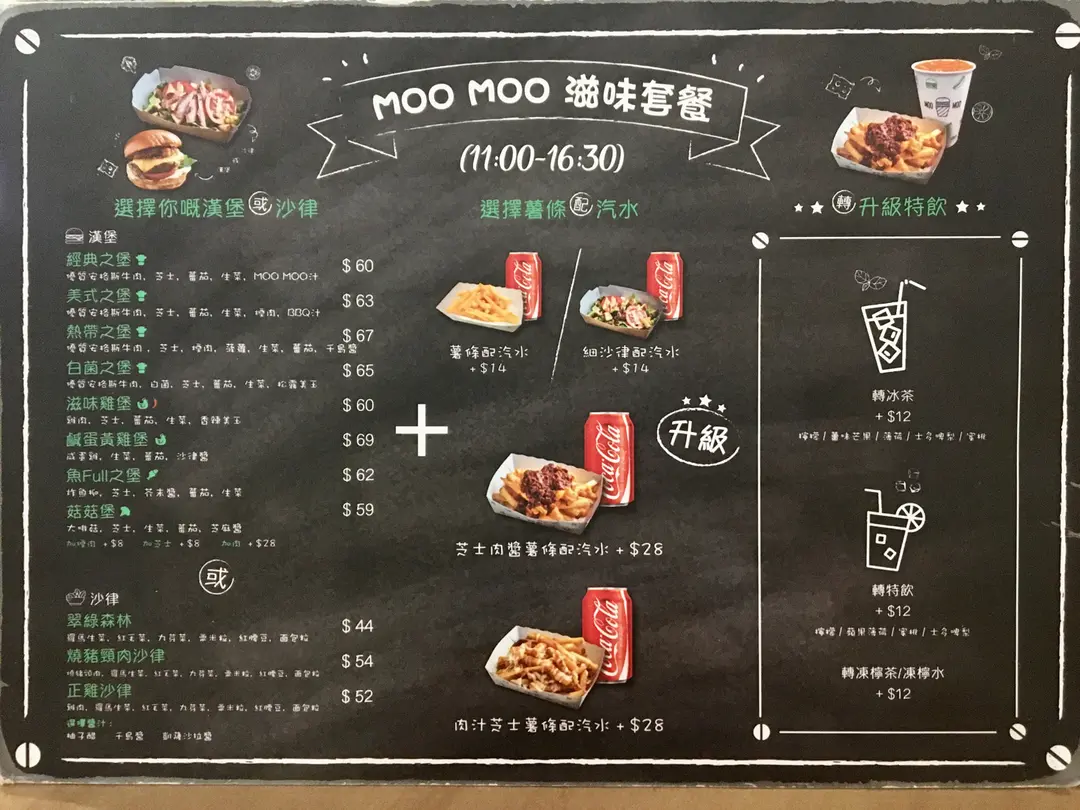 MOO MOO 滋味套餐
(11:00-16:30)
選擇你嘅漢堡 或 沙律
漢堡
經典之堡 $ 60
優質安格斯牛肉、芝士、蕃茄、生菜、MOO MOO汁
美式之堡 $ 63
優質安格斯牛肉、芝士、蕃茄、生菜、煙肉、BBQ汁
熱帶之堡 $ 67
優質安格斯牛肉、芝士、煙肉、菠蘿、生菜、蕃茄、千島醬
白菌之堡 $ 65
優質安格斯牛肉、白菌、芝士、蕃茄、生菜、松露美玉
滋味雞堡 $ 60
雞肉、芝士、蕃茄、生菜、香辣美玉
鹹蛋黃雞堡 $ 69
咸蛋雞、生菜、蕃茄、沙律醬
魚Full之堡 $ 62
炸魚柳、芝士、芥末醬、蕃茄、生菜
菇菇堡 $ 59
大啡菇、芝士、生菜、蕃茄、芝麻醬
加煙肉 +$8 加芝士 +$8 加肉 +$28
或
沙律
翠綠森林 $ 44
羅馬生菜、紅毛菜、火箭菜、粟米粒、紅腰豆、面包粒
燒豬頸肉沙律 $ 54
燒豬頸肉、羅馬生菜、紅毛菜、火箭菜、粟米粒、紅腰豆、面包粒
正雞沙律 $ 52
雞肉、羅馬生菜、紅毛菜、火箭菜、粟米粒、紅腰豆、面包粒
選擇醬汁：
柚子醋 千島醬 凱薩沙拉醬
選擇薯條 配 汽水
Coca-Cola
Coca-Cola
薯條配汽水
+$14
細沙律配汽水
+$14
+
升級
Coca-Cola
芝士肉醬薯條配汽水 +$28
Coca-Cola
肉汁芝士薯條配汽水 +$28
MOO MOO
轉 升級特飲
轉冰茶
+ $12
檸檬 / 薑味芒果 / 薄荷 / 士多啤梨 / 蜜桃
轉特飲
+ $12
檸檬 / 蘋果薄荷 / 蜜桃 / 士多啤梨
轉凍檸茶/凍檸水
+ $12